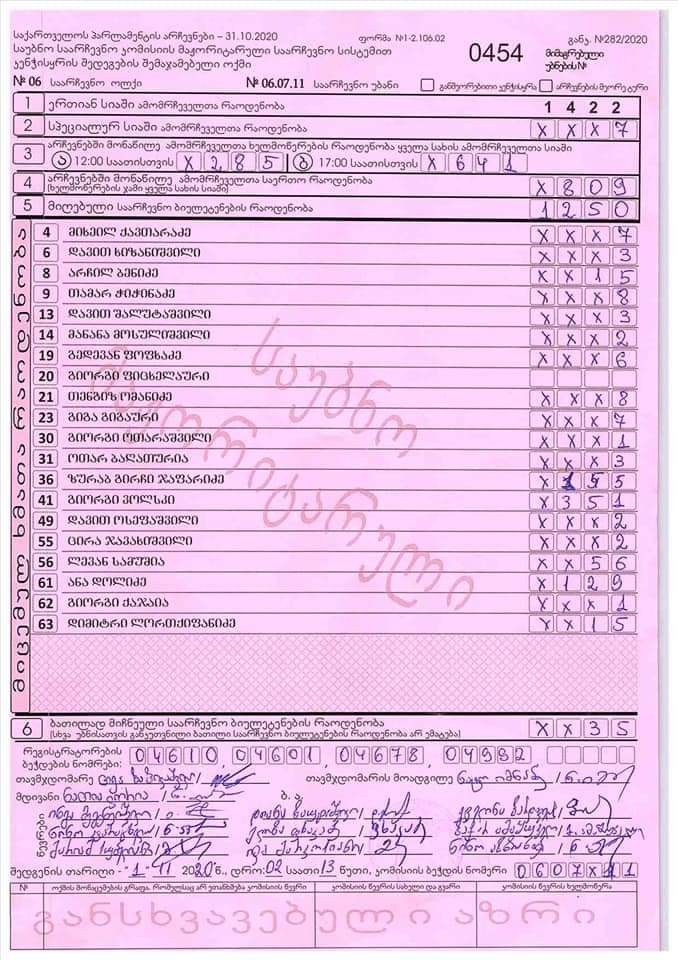 საქართველოს პარლამენტის არჩევნები – 31.10.2020
ფორმა №1-2.106.02
განკ. №282/2020
საუბნო საარჩევნო კომისიის მაჟორიტარული საარჩევნო სისტემით
კენჭისყრის შედეგების შემაჯამებელი ოქმი
0454
მიმაგრებული უბნების №
№ 06 საარჩევნო ოლქი № 06.07.11 საარჩევნო უბანი განმეორებითი კენჭისყრა არჩევნების მეორე ტური
1 ერთიან სიაში ამომრჩეველთა რაოდენობა 1 4 2 2
2 სპეციალურ სიაში ამომრჩეველთა რაოდენობა X X X 7
3 არჩევნებში მონაწილე ამომრჩეველთა ხელმოწერების რაოდენობა ყველა სახის ამომრჩეველთა სიაში
ა 12:00 საათისთვის X 2 8 5 ბ 17:00 საათისთვის X 6 4 1
4 არჩევნებში მონაწილე ამომრჩეველთა საერთო რაოდენობა X 8 0 9
(ხელმოწერების ჯამი ყველა სახის სიაში)
5 მიღებული საარჩევნო ბიულეტენების რაოდენობა 1 2 5 0
მიცემულ ხმათა რაოდენობა
4 მიხეილ ქავთარაძე X X X 7
6 დავით ხიზანიშვილი X X X 3
8 არჩილ ბენიძე X X 1 5
9 თამარ ჭიჭინაძე X X X 8
13 დავით შალუტაშვილი X X X 3
14 მანანა მოსულიშვილი X X X 2
19 გედევან ფოფხაძე X X X 6
20 გიორგი ფიცხელაური
21 თენგიზ ომანიძე X X X 8
23 გიგა გიგაური X X X 7
30 გიორგი ოთარაშვილი X X X 1
31 ოთარ ბაღათურია X X X 3
36 ზურაბ გირჩი ჯაფარიძე X 1 5 5
41 გიორგი ვოლსკი X 3 5 1
49 დავით ოსეფაშვილი X X X 2
55 ცირა ჯავახიშვილი X X X 2
56 ლევან სამუშია X X 5 6
61 ანა დოლიძე X 1 2 9
62 გიორგი ქაჯაია X X X 1
63 დიმიტრი ლორთქიფანიძე X X 1 5
საუბნო
მაჟორიტარული
6 ბათილად მიჩნეული საარჩევნო ბიულეტენების რაოდენობა X X 3 5
(სხვა უბნისათვის განკუთვნილი ბათილი საარჩევნო ბიულეტენების რაოდენობა არ ემატება)
რეგისტრატორების
ბეჭდების ნომრები: 04610, 04601, 04678, 04982
თავმჯდომარე თავმჯდომარის მოადგილე
მდივანი ბ. ა.
წევრები
შედგენის თარიღი -1-11 2020 წ., დრო: 02 საათი 13 წუთი, კომისიის ბეჭდის ნომერი 0607X11
№ ოქმის მონაცემების გრაფა, რომელსაც არ ეთანხმება კომისიის წევრი კომისიის წევრის სახელი და გვარი კომისიის წევრის ხელმოწერა
განსხვავებული აზრი